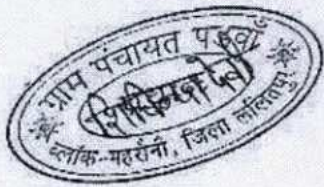 ग्राम पंचायत पडवाँ
ब्लॉक-महरौनी, जिला ललितपुर